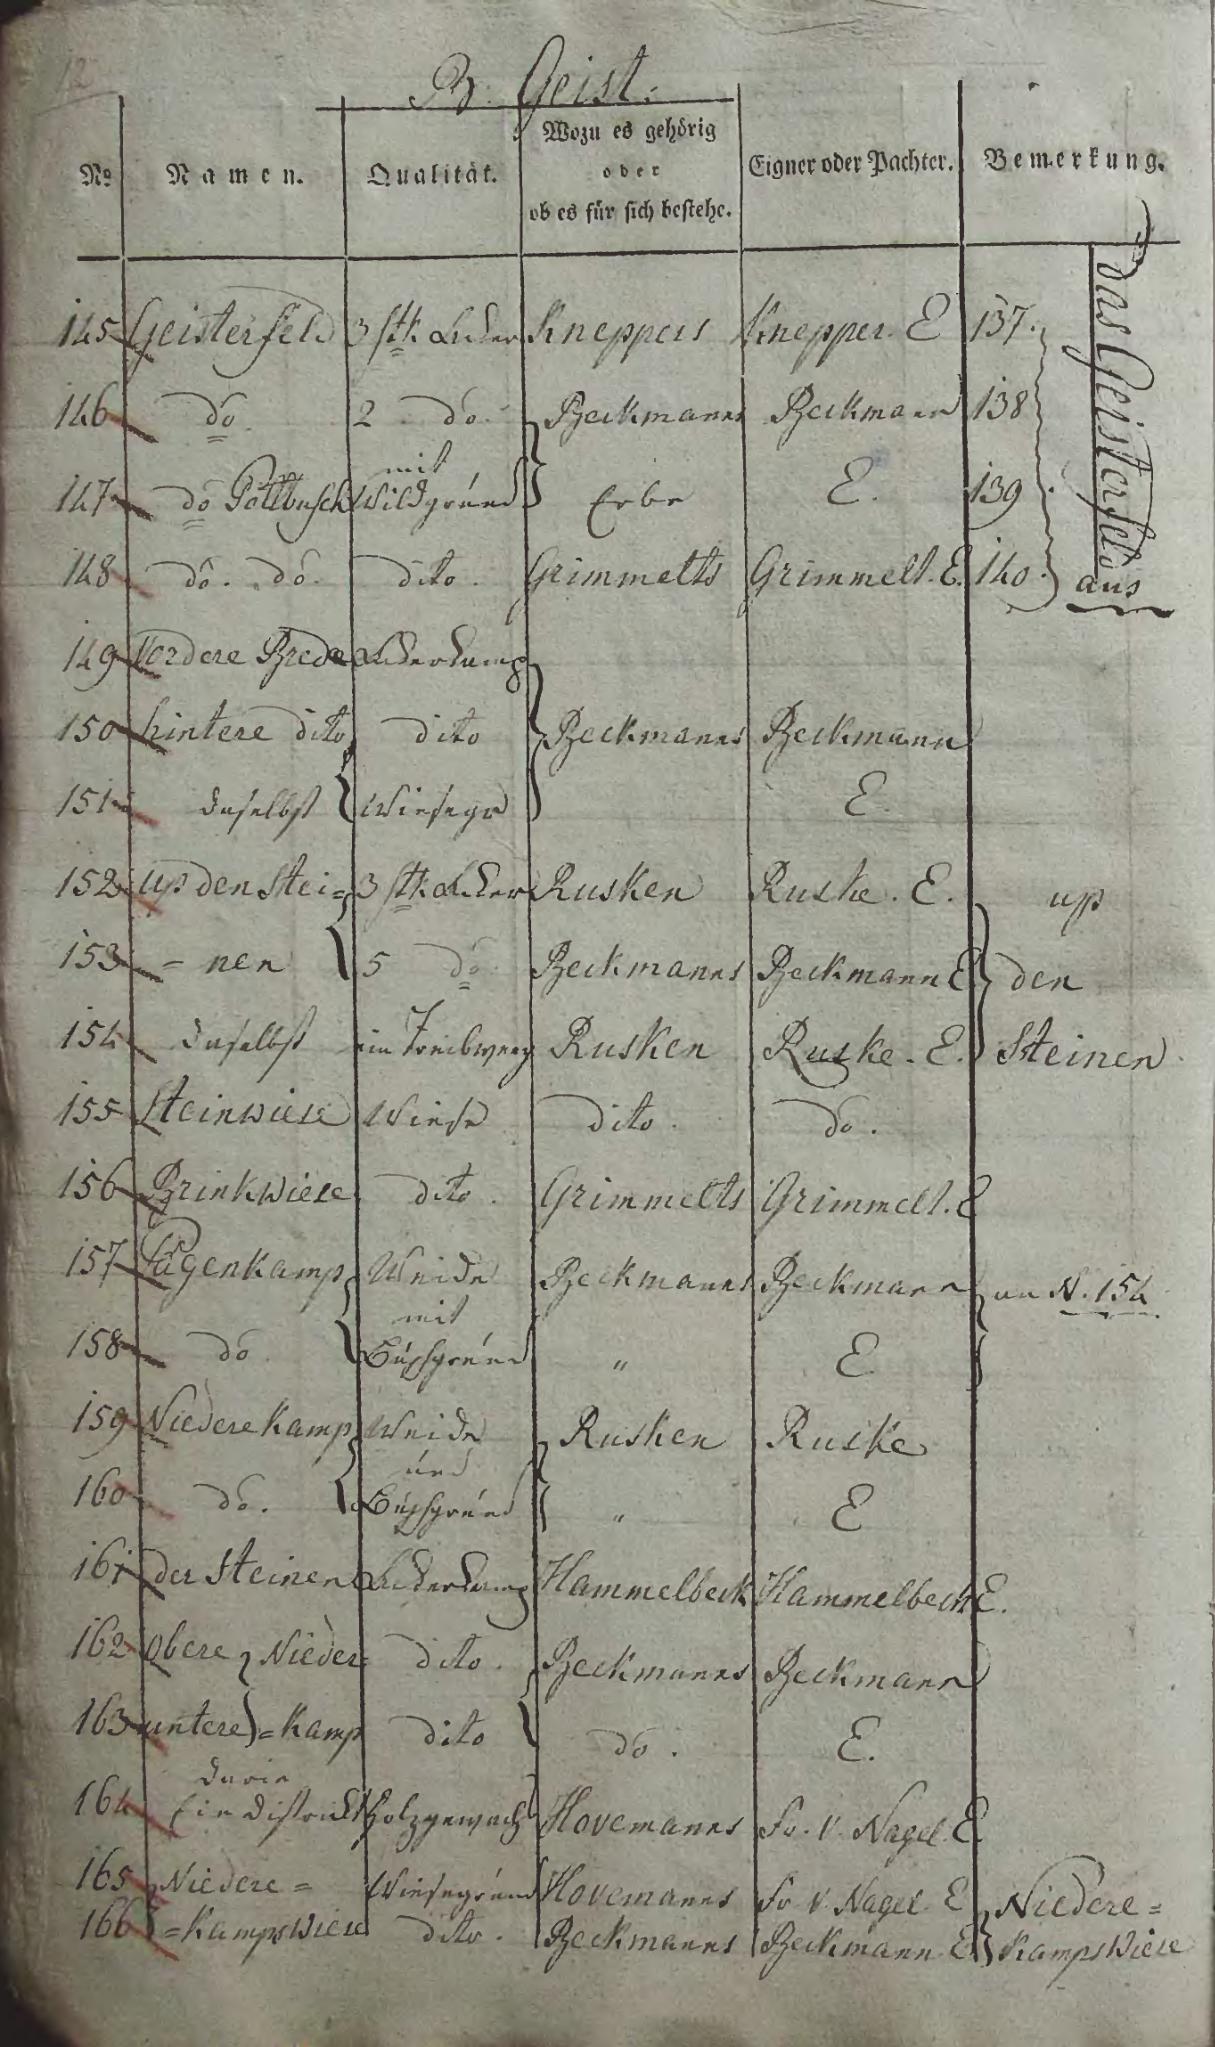 B. Geist.
No Namen. Qualität. Wozu es gehörig oder ob es für sich bestehe. Eigner oder Pachter. Bemerkung.
das Geisterfeld
145 Geisterfeld 3 stk Acker Kneppers Knepper. E 137.
146 do. 2 do. Beckmanns Beckmann 138
mit
147 do Pöttbusch Wildgrund Erbe E. 139.
148 do. do. dito. Grimmelts Grimmelt. E. 140. aus
149 Vordere Brede Ackerkamp
150 hintere dito dito Beckmanns Beckmann
151 daselbst Wiesegr E.
152 up den Stei= 3 stk. Acker Rusken Ruske. E. up
153 = nen 5 do Beckmanns Beckmann E den
154 daselbst ein Treibweg Rusken Ruske. E. Steinen.
155 Steinwiese Wiese dito. do.
156 Brinkwiese dito. Grimmelts Grimmelt. E
157 Pagenkamp Weide Beckmanns Beckmann an N. 154
mit
158 do Buschgrund " E
159 Niederekamp Weide Rusken Ruske
und
160 do. Buschgrund " E
161 der Steinen Ackerkamp Hammelbeck Hammelbeck E.
162 Obere Nieder= dito. Beckmanns Beckmann
163 untere =Kamp dito do. E.
darin
164 Ein District Holzgewachs Hovemanns Fr. v. Nagel. E
165 Niedere= Wiesegrund Hovemanns Fr v. Nagel. E Niedere=
166 =Kampswiese dito. Beckmanns Beckmann E Kampswiese